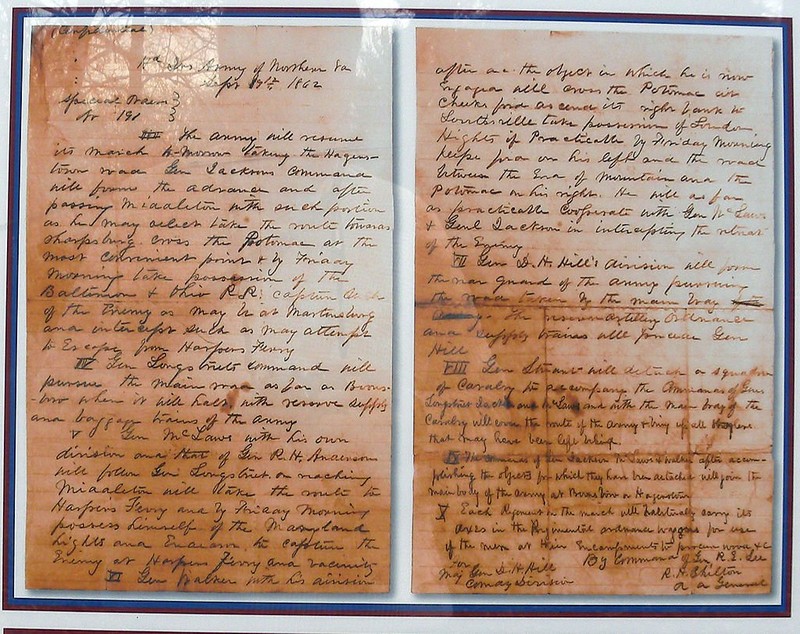 (Confidential)
Hd Qrs Army of Northern Va
Sept 9th 1862
Special Orders
No 191
III The Army will resume
its march to-morrow taking the Hagers-
town road Gen Jacksons command
will form the advance and after
passing Middleton with such portion
as he may select take the route towards
Sharpsburg cross the Potomac at the
most convenient point & by Friday
Morning take possession of the
Baltimore & Ohio R.R. capture such
of the Enemy as may be at Martinsburg
and intercept such as may attempt
to Escape from Harpers Ferry
IV Gen Longstreets command will
pursue the main road as far as Boons-
boro where it will halt with reserve supply
and baggage trains of the Army
V Gen McLaws with his own
division and that of Gen R. H. Anderson
will follow Gen Longstreet on reaching
Middleton will take the route to
Harpers Ferry and by Friday Morning
possess himself of the Maryland
Hights and Endeavor to capture the
Enemy at Harpers Ferry and vacinity
VI Gen Walker with his division
after acc the object in which he is now
Engaged will cross the Potomac at
Cheeks ford ascend its right bank to
Lovettsville take possession of Loudon
Hights if Practicable by Friday Morning
Keeps ford on his left and the road
between the End of Mountain and the
Potomac on his right. He will as far
as practicable Cooperate with Gen McLaws
& Genl Jackson in intercepting the retreat
of the Enemy
VII Gen D. H. Hill's division will form
the rear guard of the army pursuing
the road taken by the main body
The reserve artillery Ordnance
and supply trains will precede Gen
Hill
VIII Gen Stuart will detach a squadron
of Cavalry to accompany the Commands of Gens
Longstreet Jackson and McLaws and with the main body of the
Cavalry will cover the route of the Army & bring up all stragglers
that may have been left behind
IX The commands of Gen Jackson McLaws & Walker after accom-
plishing the objects for which they have been detached will join the
main body of the army at Boonsboro or Hagerstown
X Each Regiment on the march will habitually carry its
axes in the Regimental ordnance waggons for use
of the men at their Encampments to procure wood &c
By Command of Gen R. E. Lee
For
Maj Gen D. H. Hill
R. H. Chilton
Comdg Division
A A General